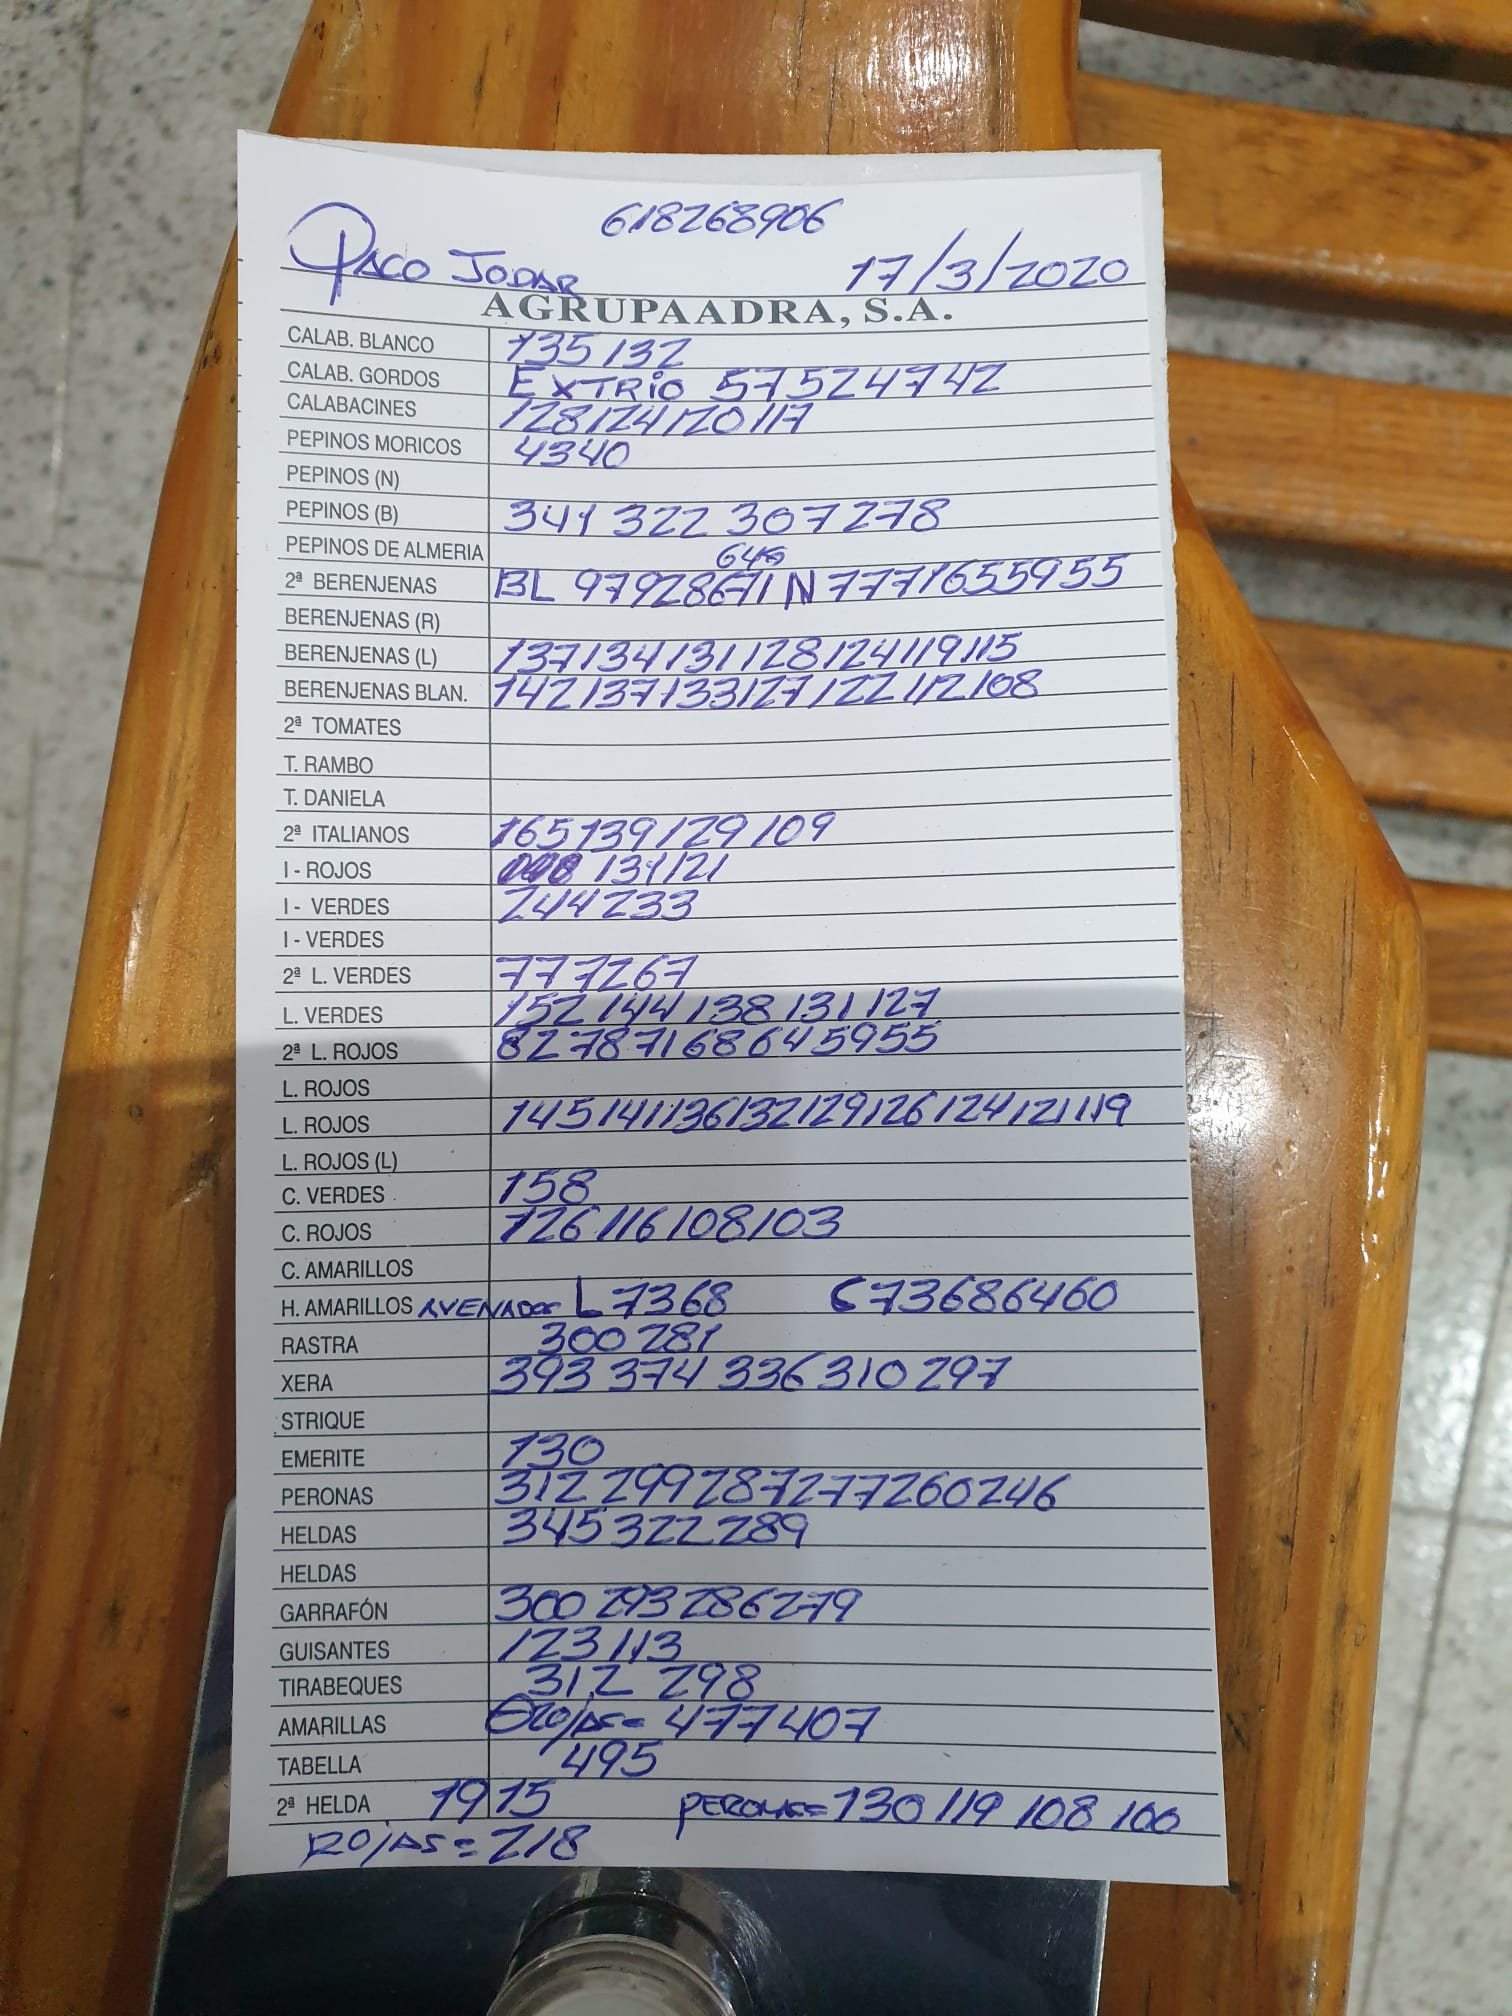 618268906
PACO JODAR 17/3/2020
AGRUPAADRA, S.A.
CALAB. BLANCO 135 132
CALAB. GORDOS EXTRIO 57 52 47 42
CALABACINES 128 124 120 117
PEPINOS MORICOS 43 40
PEPINOS (N)
PEPINOS (B) 341 322 307 278
PEPINOS DE ALMERIA
2ª BERENJENAS BL 97 92 86 71 64 N 77 71 65 59 55
BERENJENAS (R)
BERENJENAS (L) 137 134 131 128 124 119 115
BERENJENAS BLAN. 142 137 133 127 122 112 108
2ª TOMATES
T. RAMBO
T. DANIELA
2ª ITALIANOS 165 139 129 109
I - ROJOS 131 121
I - VERDES 244 233
I - VERDES
2ª L. VERDES 77 72 67
L. VERDES 152 144 138 131 127
2ª L. ROJOS 82 78 71 68 64 59 55
L. ROJOS
L. ROJOS 145 141 136 132 129 126 124 121 119
L. ROJOS (L)
C. VERDES 158
C. ROJOS 126 116 108 103
C. AMARILLOS
H. AMARILLOS AVENADOS L 73 68 C 73 68 64 60
RASTRA 300 281
XERA 393 374 336 310 297
STRIQUE
EMERITE 130
PERONAS 312 299 287 277 260 246
HELDAS 345 322 289
HELDAS
GARRAFÓN 300 293 286 279
GUISANTES 123 113
TIRABEQUES 312 298
AMARILLAS ROJAS = 477 407
TABELLA 495
2ª HELDA 19 15 PERONAS = 130 119 108 100
ROJAS = 218